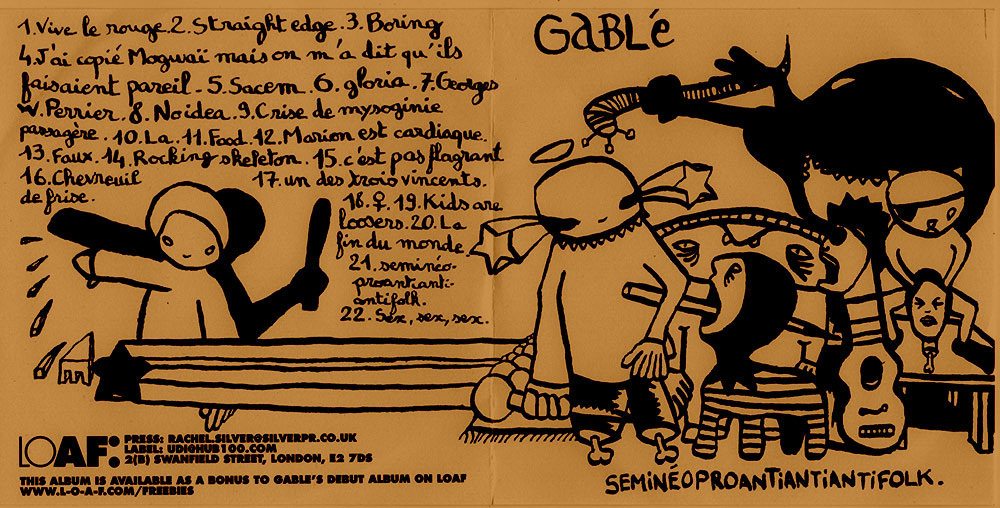 1.Vive le rouge.2.Straight edge.3.Boring
4.J'ai copié Mogwaï mais on m'a dit qu'ils
faisaient pareil.5.Sacem.6.gloria.7.Georges
w.Perrier.8.Noidea.9.Crise de mysoginie
passagère.10.La.11.Food.12.Marion est cardiaque.
13.Faux.14.Rocking skeleton.15.c'est pas flagrant
16.Chevreuil 17.un des trois vincents.
de frise. 18.♀.19.Kids are
loosers.20.La
fin du monde.
21.seminéo-
proantianti-
antifolk.
22.Sex,sex,sex.
LOAF:
PRESS: RACHEL.SILVER@SILVERPR.CO.UK
LABEL: UDI@HUB100.COM
2(B) SWANFIELD STREET, LONDON, E2 7DS
THIS ALBUM IS AVAILABLE AS A BONUS TO GABLE'S DEBUT ALBUM ON LOAF
WWW.L-O-A-F.COM/FREEBIES
GaBLé
SEMINÉOPROANTIANTIANTIFOLK.